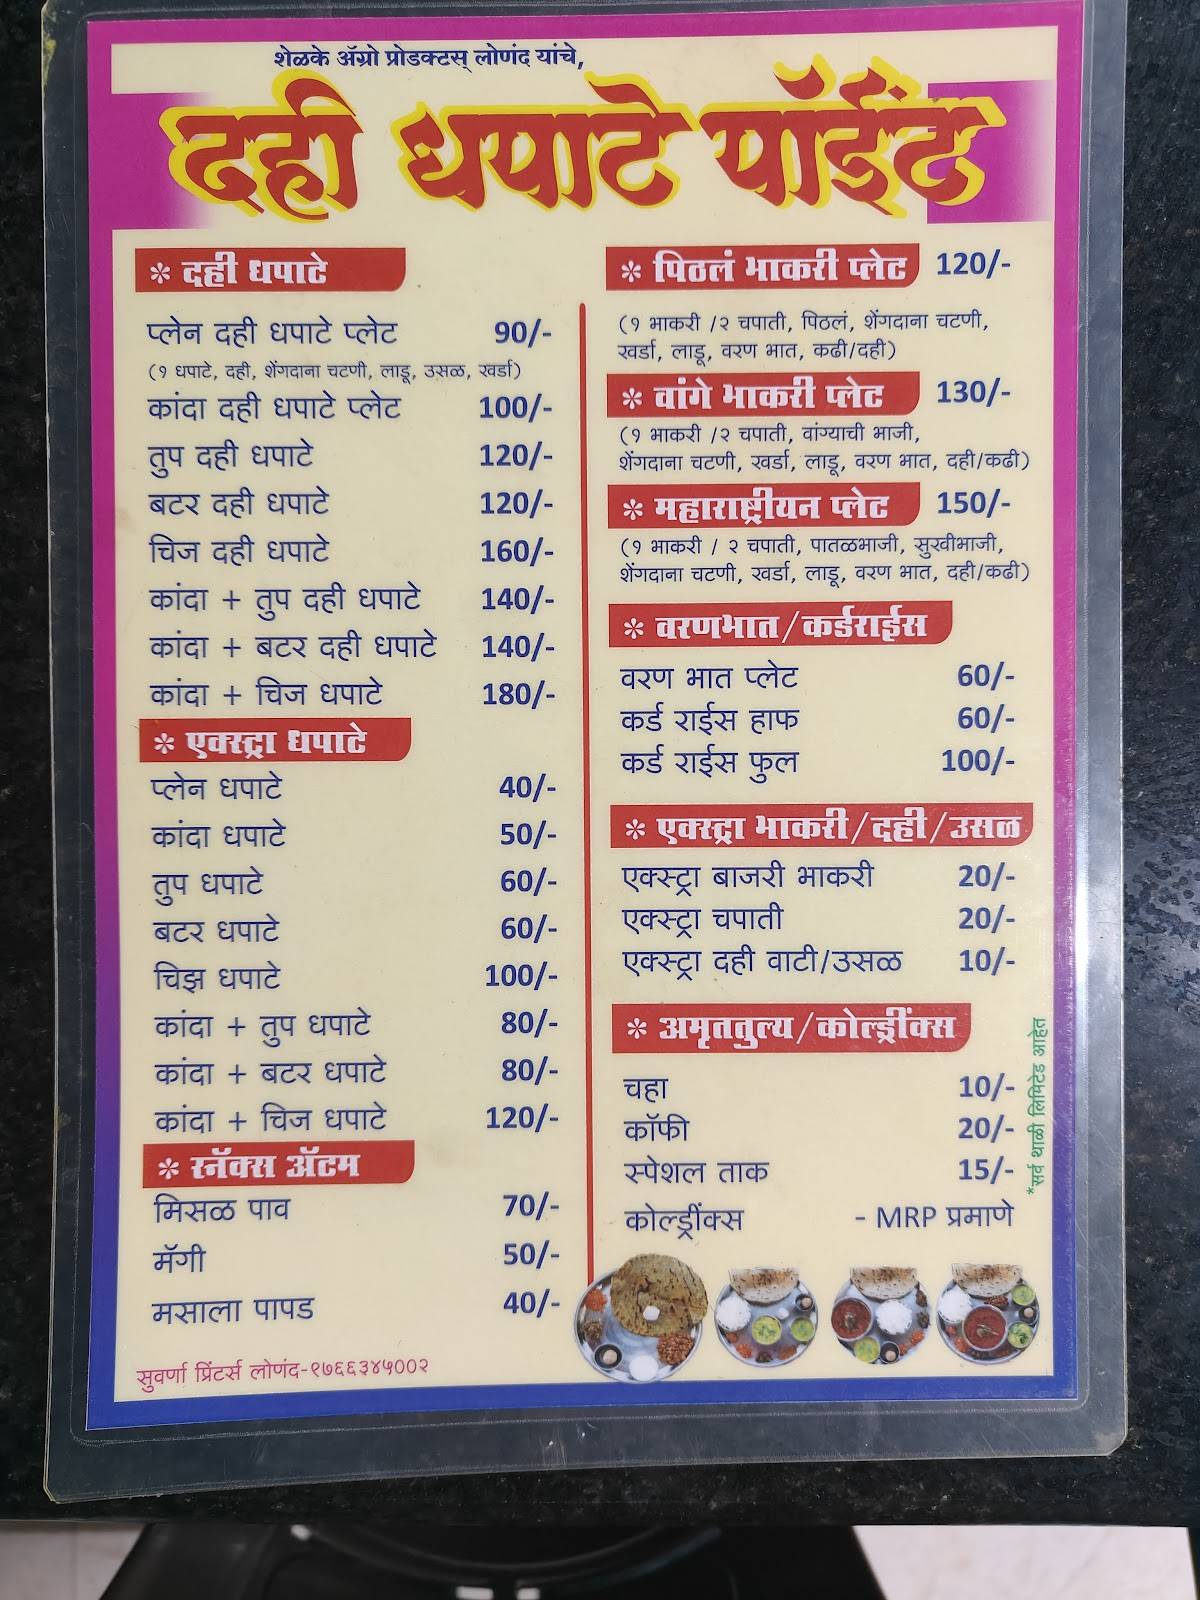 शेळके ॲग्रो प्रोडक्टस् लोणंद यांचे,
दही धपाटे पॉईंट
* दही धपाटे
प्लेन दही धपाटे प्लेट 90/-
(१ धपाटे, दही, शेंगदाना चटणी, लाडू, उसळ, खर्डा)
कांदा दही धपाटे प्लेट 100/-
तुप दही धपाटे 120/-
बटर दही धपाटे 120/-
चिज दही धपाटे 160/-
कांदा + तुप दही धपाटे 140/-
कांदा + बटर दही धपाटे 140/-
कांदा + चिज धपाटे 180/-
* एक्स्ट्रा धपाटे
प्लेन धपाटे 40/-
कांदा धपाटे 50/-
तुप धपाटे 60/-
बटर धपाटे 60/-
चिझ धपाटे 100/-
कांदा + तुप धपाटे 80/-
कांदा + बटर धपाटे 80/-
कांदा + चिज धपाटे 120/-
* स्नॅक्स ॲटम
मिसळ पाव 70/-
मॅगी 50/-
मसाला पापड 40/-
सुवर्णा प्रिंटर्स लोणंद-९७६६३४५००२
* पिठलं भाकरी प्लेट 120/-
(१ भाकरी /२ चपाती, पिठलं, शेंगदाना चटणी,
खर्डा, लाडू, वरण भात, कढी/दही)
* वांगे भाकरी प्लेट 130/-
(१ भाकरी /२ चपाती, वांग्याची भाजी,
शेंगदाना चटणी, खर्डा, लाडू, वरण भात, दही/कढी)
* महाराष्ट्रीयन प्लेट 150/-
(१ भाकरी / २ चपाती, पातळभाजी, सुखीभाजी,
शेंगदाना चटणी, खर्डा, लाडू, वरण भात, दही/कढी)
* वरणभात/कर्डराईस
वरण भात प्लेट 60/-
कर्ड राईस हाफ 60/-
कर्ड राईस फुल 100/-
* एक्स्ट्रा भाकरी/दही/उसळ
एक्स्ट्रा बाजरी भाकरी 20/-
एक्स्ट्रा चपाती 20/-
एक्स्ट्रा दही वाटी/उसळ 10/-
* अमृततुल्य/कोल्ड्रींक्स
चहा 10/-
कॉफी 20/-
स्पेशल ताक 15/-
कोल्ड्रींक्स - MRP प्रमाणे
*सर्व थाळी लिमिटेड आहेत